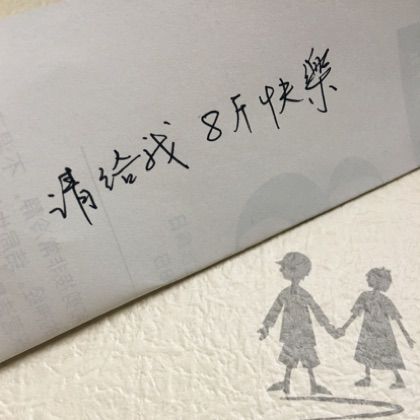 请给我 8斤快樂